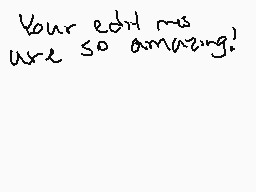 Your edit mes
are so amazing!